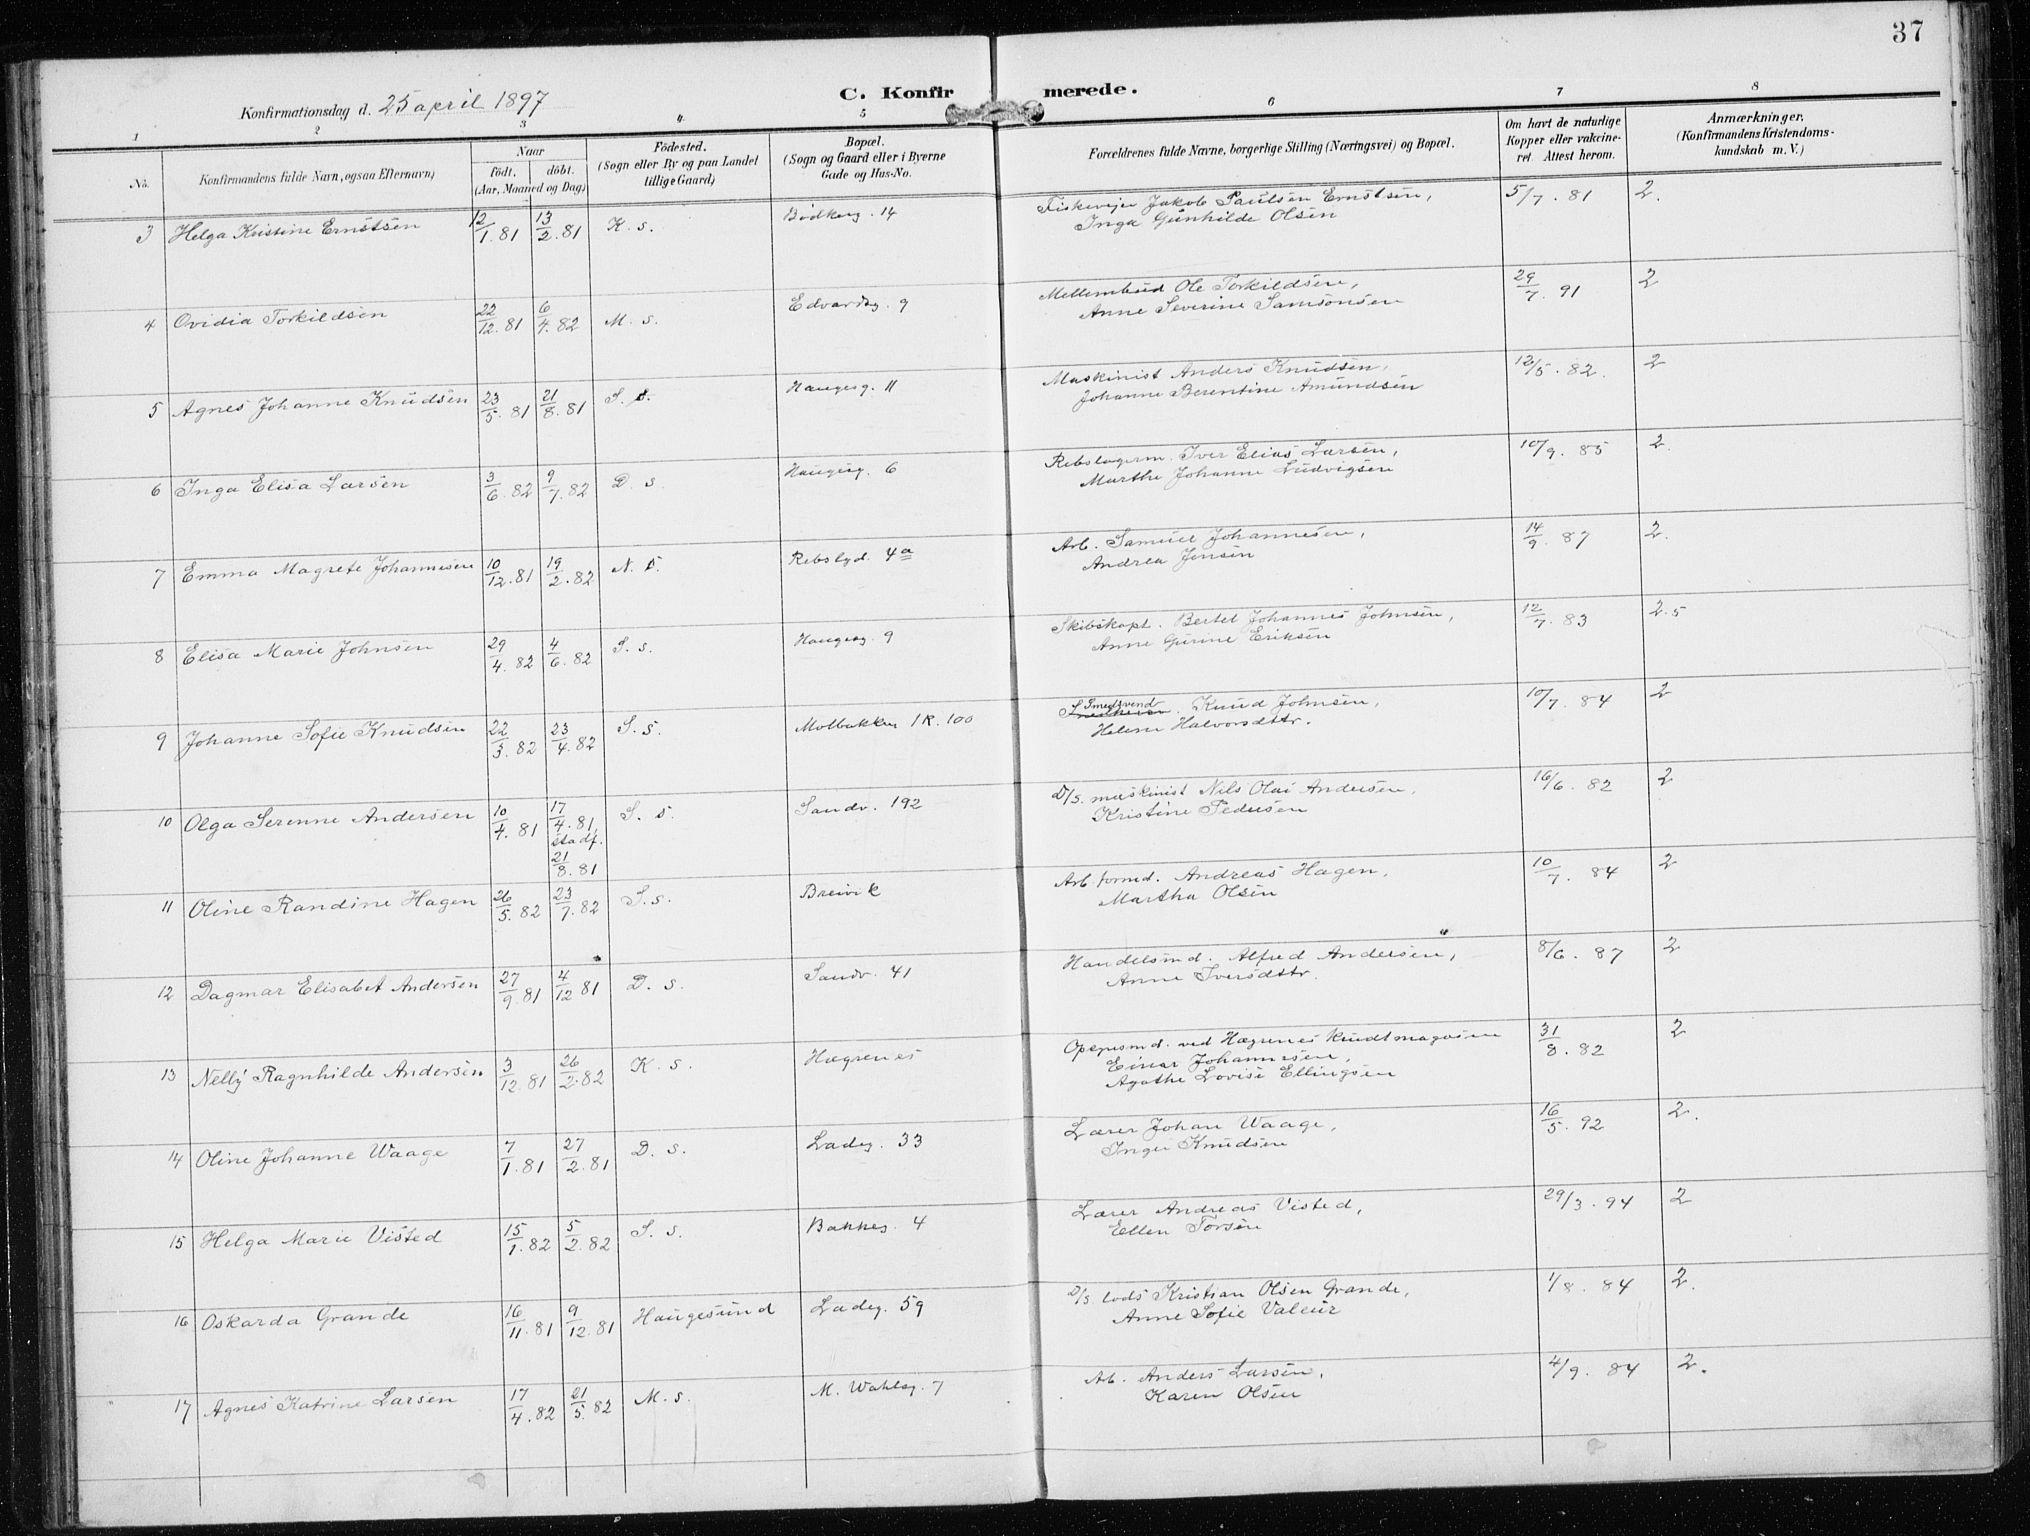 37
Konfirmationsdag d. 25 april 1897
C. Konfirmerede.
1 2 3 4 5 6 7 8
No.
Konfirmandens fulde Navn, ogsaa Efternavn)
Naar
født. døbt.
(Aar, Maaned og Dag)
Fødested.
(Sogn eller By og paa Landet
tillige Gaard)
Bopæl.
(Sogn og Gaard eller i Byerne
Gade og Hus-No.
Forældrenes fulde Navne, borgerlige Stilling (Næringsvei) og Bopæl.
Om havt de naturlige
Kopper eller vakcine-
ret Attest herom.
Anmærkninger.
(Konfirmandens Kristendoms-
kundskab m. V.)
3 Helga Kristine Ernstsen 12/1.81 13/2.81 K. s. Bødkerg. 14 Fiskevejer Jakob Paulsen Ernstsen, 5/7.81 2.
Inga Gunhilde Olsen
4 Ovidia Torkildsen 22/12.81 6/4.82 M. s. Edvardsg. 9 Ole Torkildsen, 29/7.91 2
Anne Severine Samsonsen
5 Agnes Johanne Knudsen 23/5.81 21/8.81 S. s. Haugesg. 11 Maskinist Anders Knudsen, 12/5.82. 2
Johanne Berentine Amundsen
6 Inga Elisa Larsen 3/6.82 9/7.82 D. s. Haugesg. 6 Rebslagerm. Iver Elias Larsen, 10/9.85 2.
Marthe Johanne Ludvigsen
7 Emma Magrete Johannesen 10/12.81 19/2.82 N. s. Rebslgd. 4a Arb. Samuel Johannesen, 14/9.87 2.
Andrea Jensen
8 Elisa Marie Johnsen 29/4.82 4/6.82 S. s. Haugesg. 9 Skibskapt. Bertel Johannes Johnsen, 12/7.83 2.5
Anne Gurine Eriksen
9 Johanne Sofie Knudsen 22/3.82 23/4.82 S. s. Molbakken 1 R. 100 Smedsvend Knud Johnsen, 10/7.84 2
Helene Halvorsdttr.
10 Olga Serenne Andersen 10/4.81 17/4.81, S. s. Sandv. 192 D/s. maskinist Nils Olai Andersen, 16/6.82 2
stadf.
21/8.81
Kristine Pedersen
11 Oline Randine Hagen 26/5.82 23/7.82 S. s. Breivik Arb.formd. Andreas Hagen, 10/7.84 2
Martha Olsen
12 Dagmar Elisabet Andersen 27/9.81 4/12 81 D. s. Sandv. 41 Handelsmd. Alfred Andersen, 8/6.87 2
Anne Iversdttr.
13 Nelly Ragnhilde Andersen 3/12.81 26/2.82 K. s. Hægrenes Opsynsmd. ved Hægrenes krudtmagasin 31/8.82 2
Einar Johannesen,
Agathe Lovise Ellingsen
14 Oline Johanne Waage 7/1.81 27/2.81 D. s. Ladeg. 33 Lærer Johan Waage, 16/5.92 2.
Inger Knudsen
15 Helga Marie Visted 15/1.82 5/2.82 S. s. Bakkeg. 4 Lærer Andreas Visted, 29/3.94 2
Ellen Torsen
16 Oskarda Grande 16/11.81 9/12.81 Haugesund Ladeg. 59 D/s. lods Kristian Olsen Grande, 1/8.84 2.
Anne Sofie Valeur
17 Agnes Katrine Larsen 17/4.82 21/5.82 M. s. M. Wahlsg. 7 Arb. Anders Larsen, 4/9.84 2.
Karen Olsen